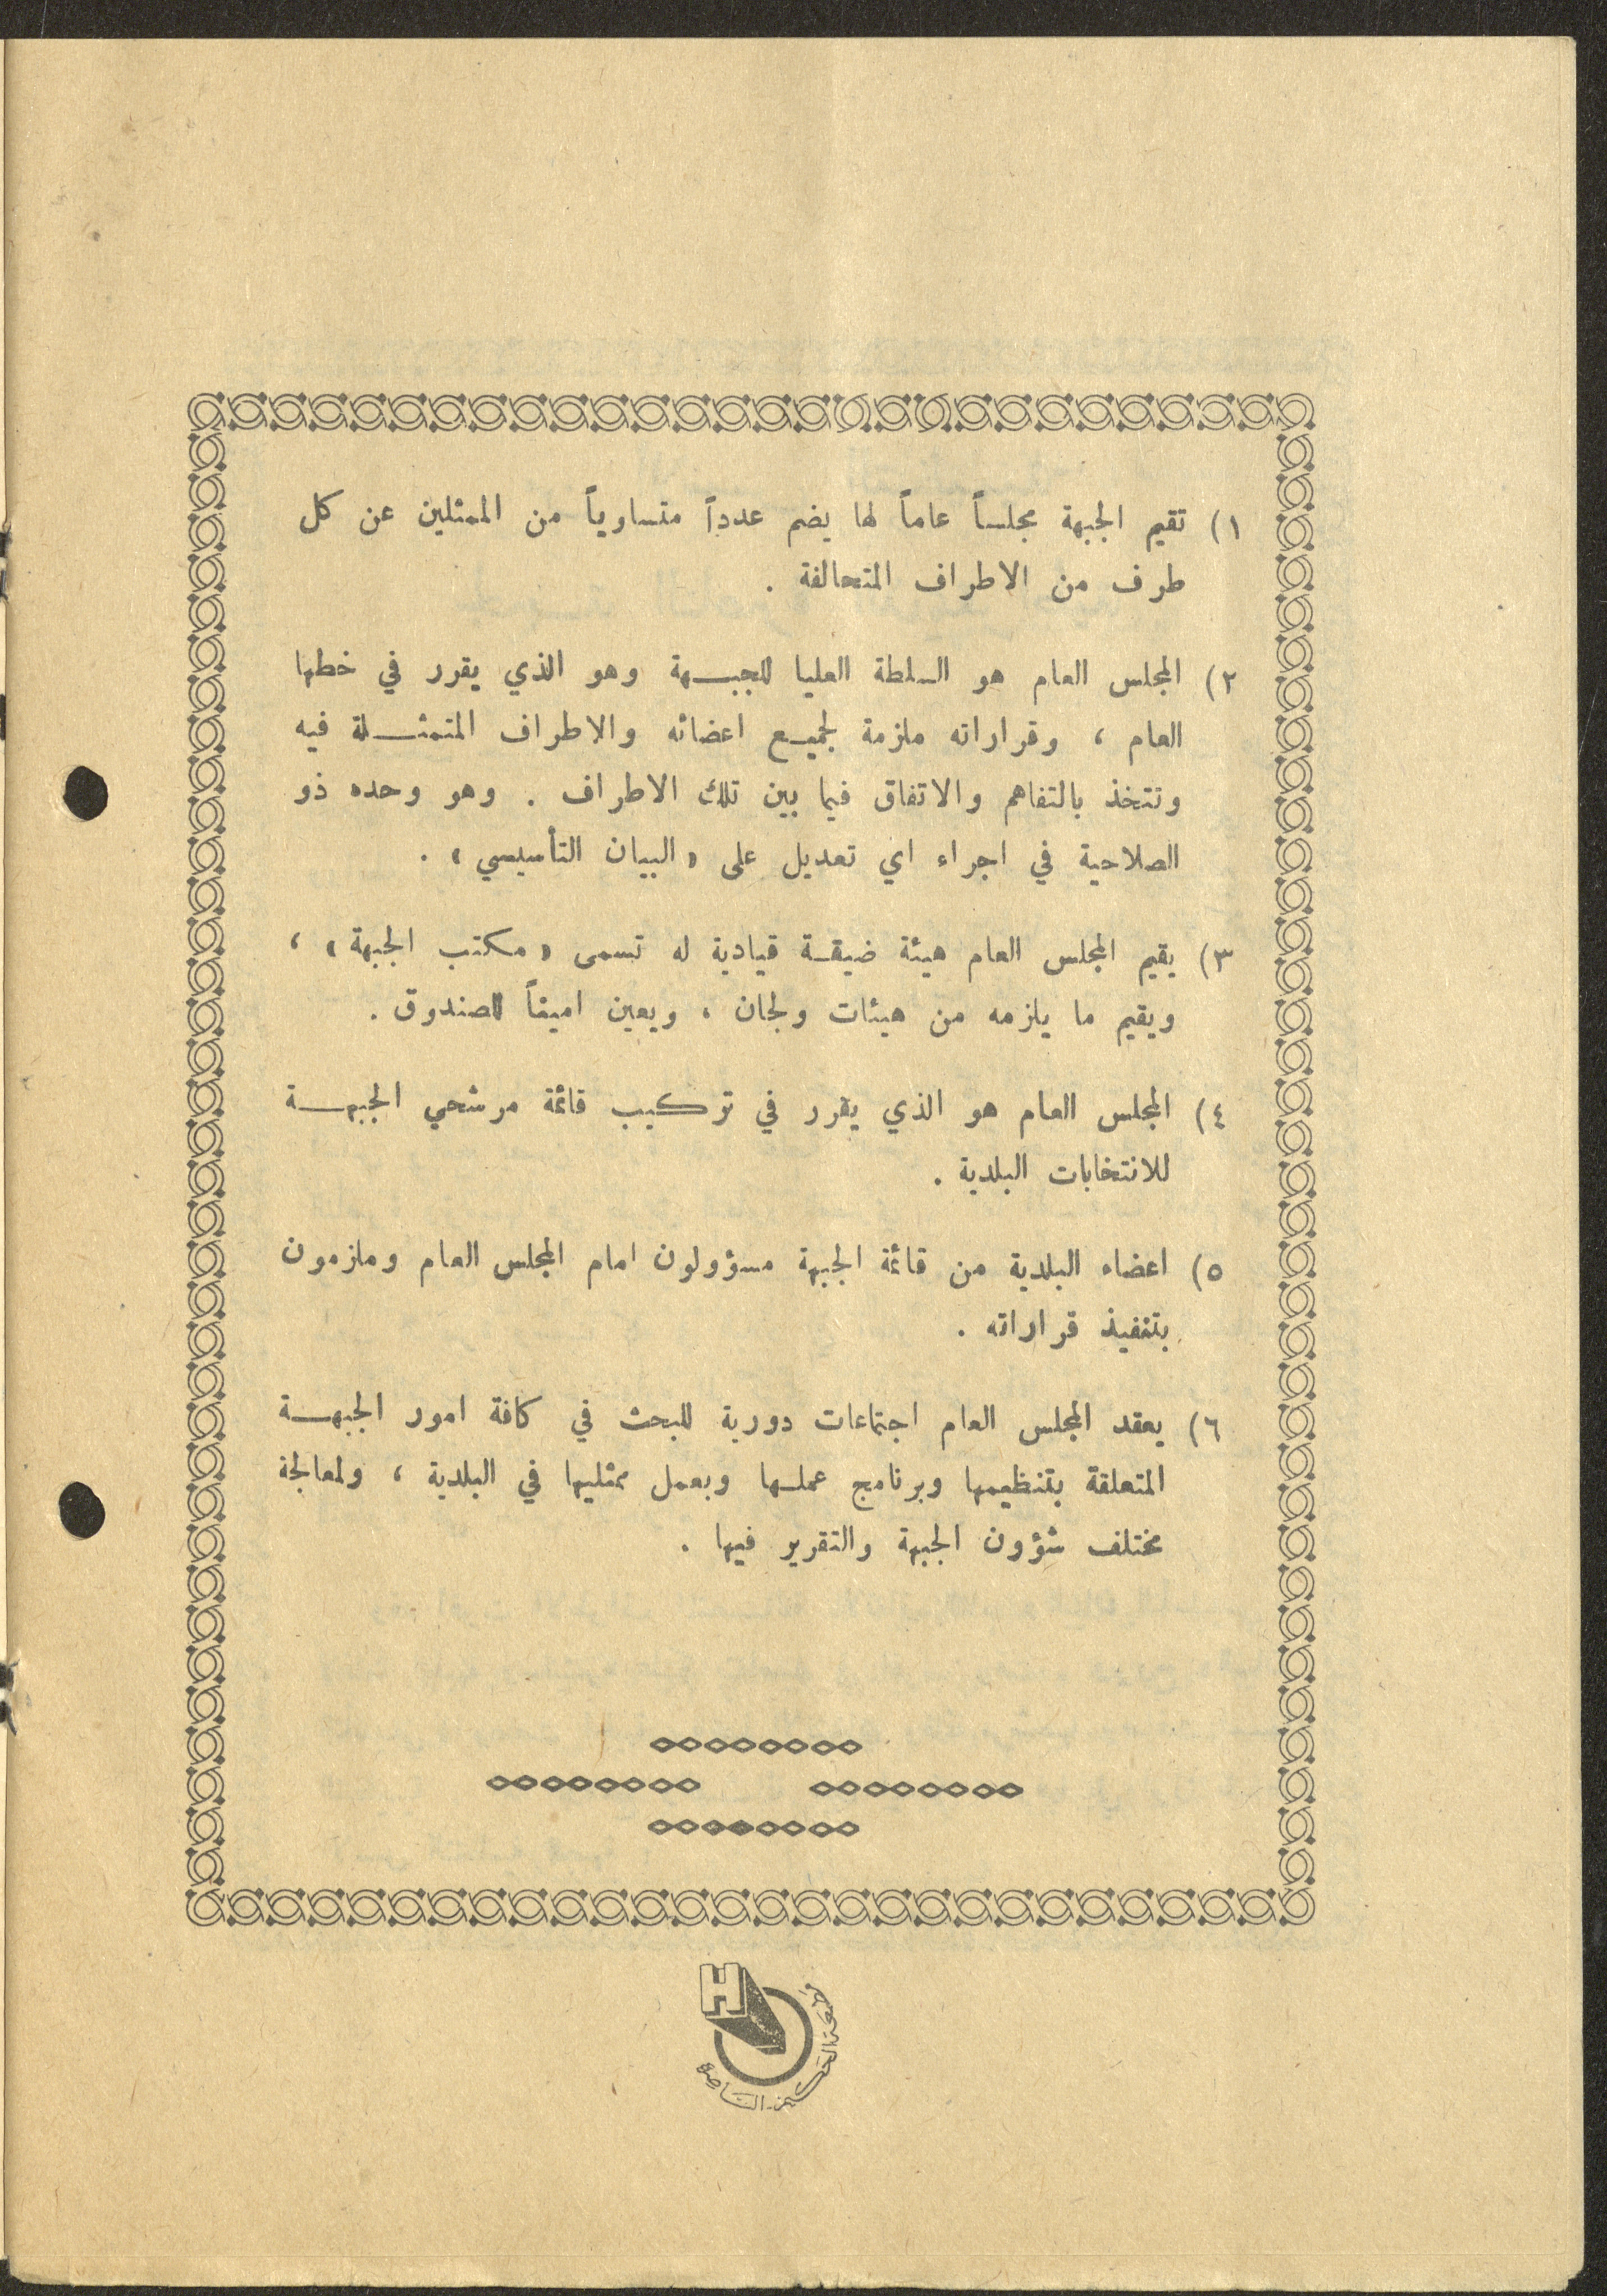 ١) تقيم الجبهة مجلساً عاماً لها يضم عدداً متساوياً من الممثلين عن كل
طرف من الاطراف المتحالفة .
٢) المجلس العام هو السلطة العليا للجبهة وهو الذي يقرر في خطها
العام ، وقراراته ملزمة لجميع اعضائه والاطراف المتمثلة فيه
وتتخذ بالتفاهم والاتفاق فيما بين تلك الاطراف . وهو وحده ذو
الصلاحية في اجراء اي تعديل على « البيان التأسيسي » .
٣) يقيم المجلس العام هيئة ضيقة قيادية له تسمى « مكتب الجبهة » ،
ويقيم ما يلزمه من هيئات ولجان ، ويعين اميناً للصندوق .
٤) المجلس العام هو الذي يقرر في تركيب قائمة مرشحي الجبهة
للانتخابات البلدية .
٥) اعضاء البلدية من قائمة الجبهة مسؤولون امام المجلس العام وملزمون
بتنفيذ قراراته .
٦) يعقد المجلس العام اجتماعات دورية للبحث في كافة امور الجبهة
المتعلقة بتنظيمها وبرنامج عملها وبعمل ممثليها في البلدية ، ولمعالجة
مختلف شؤون الجبهة والتقرير فيها .
H
مطبعة الحكيم - الناصرة